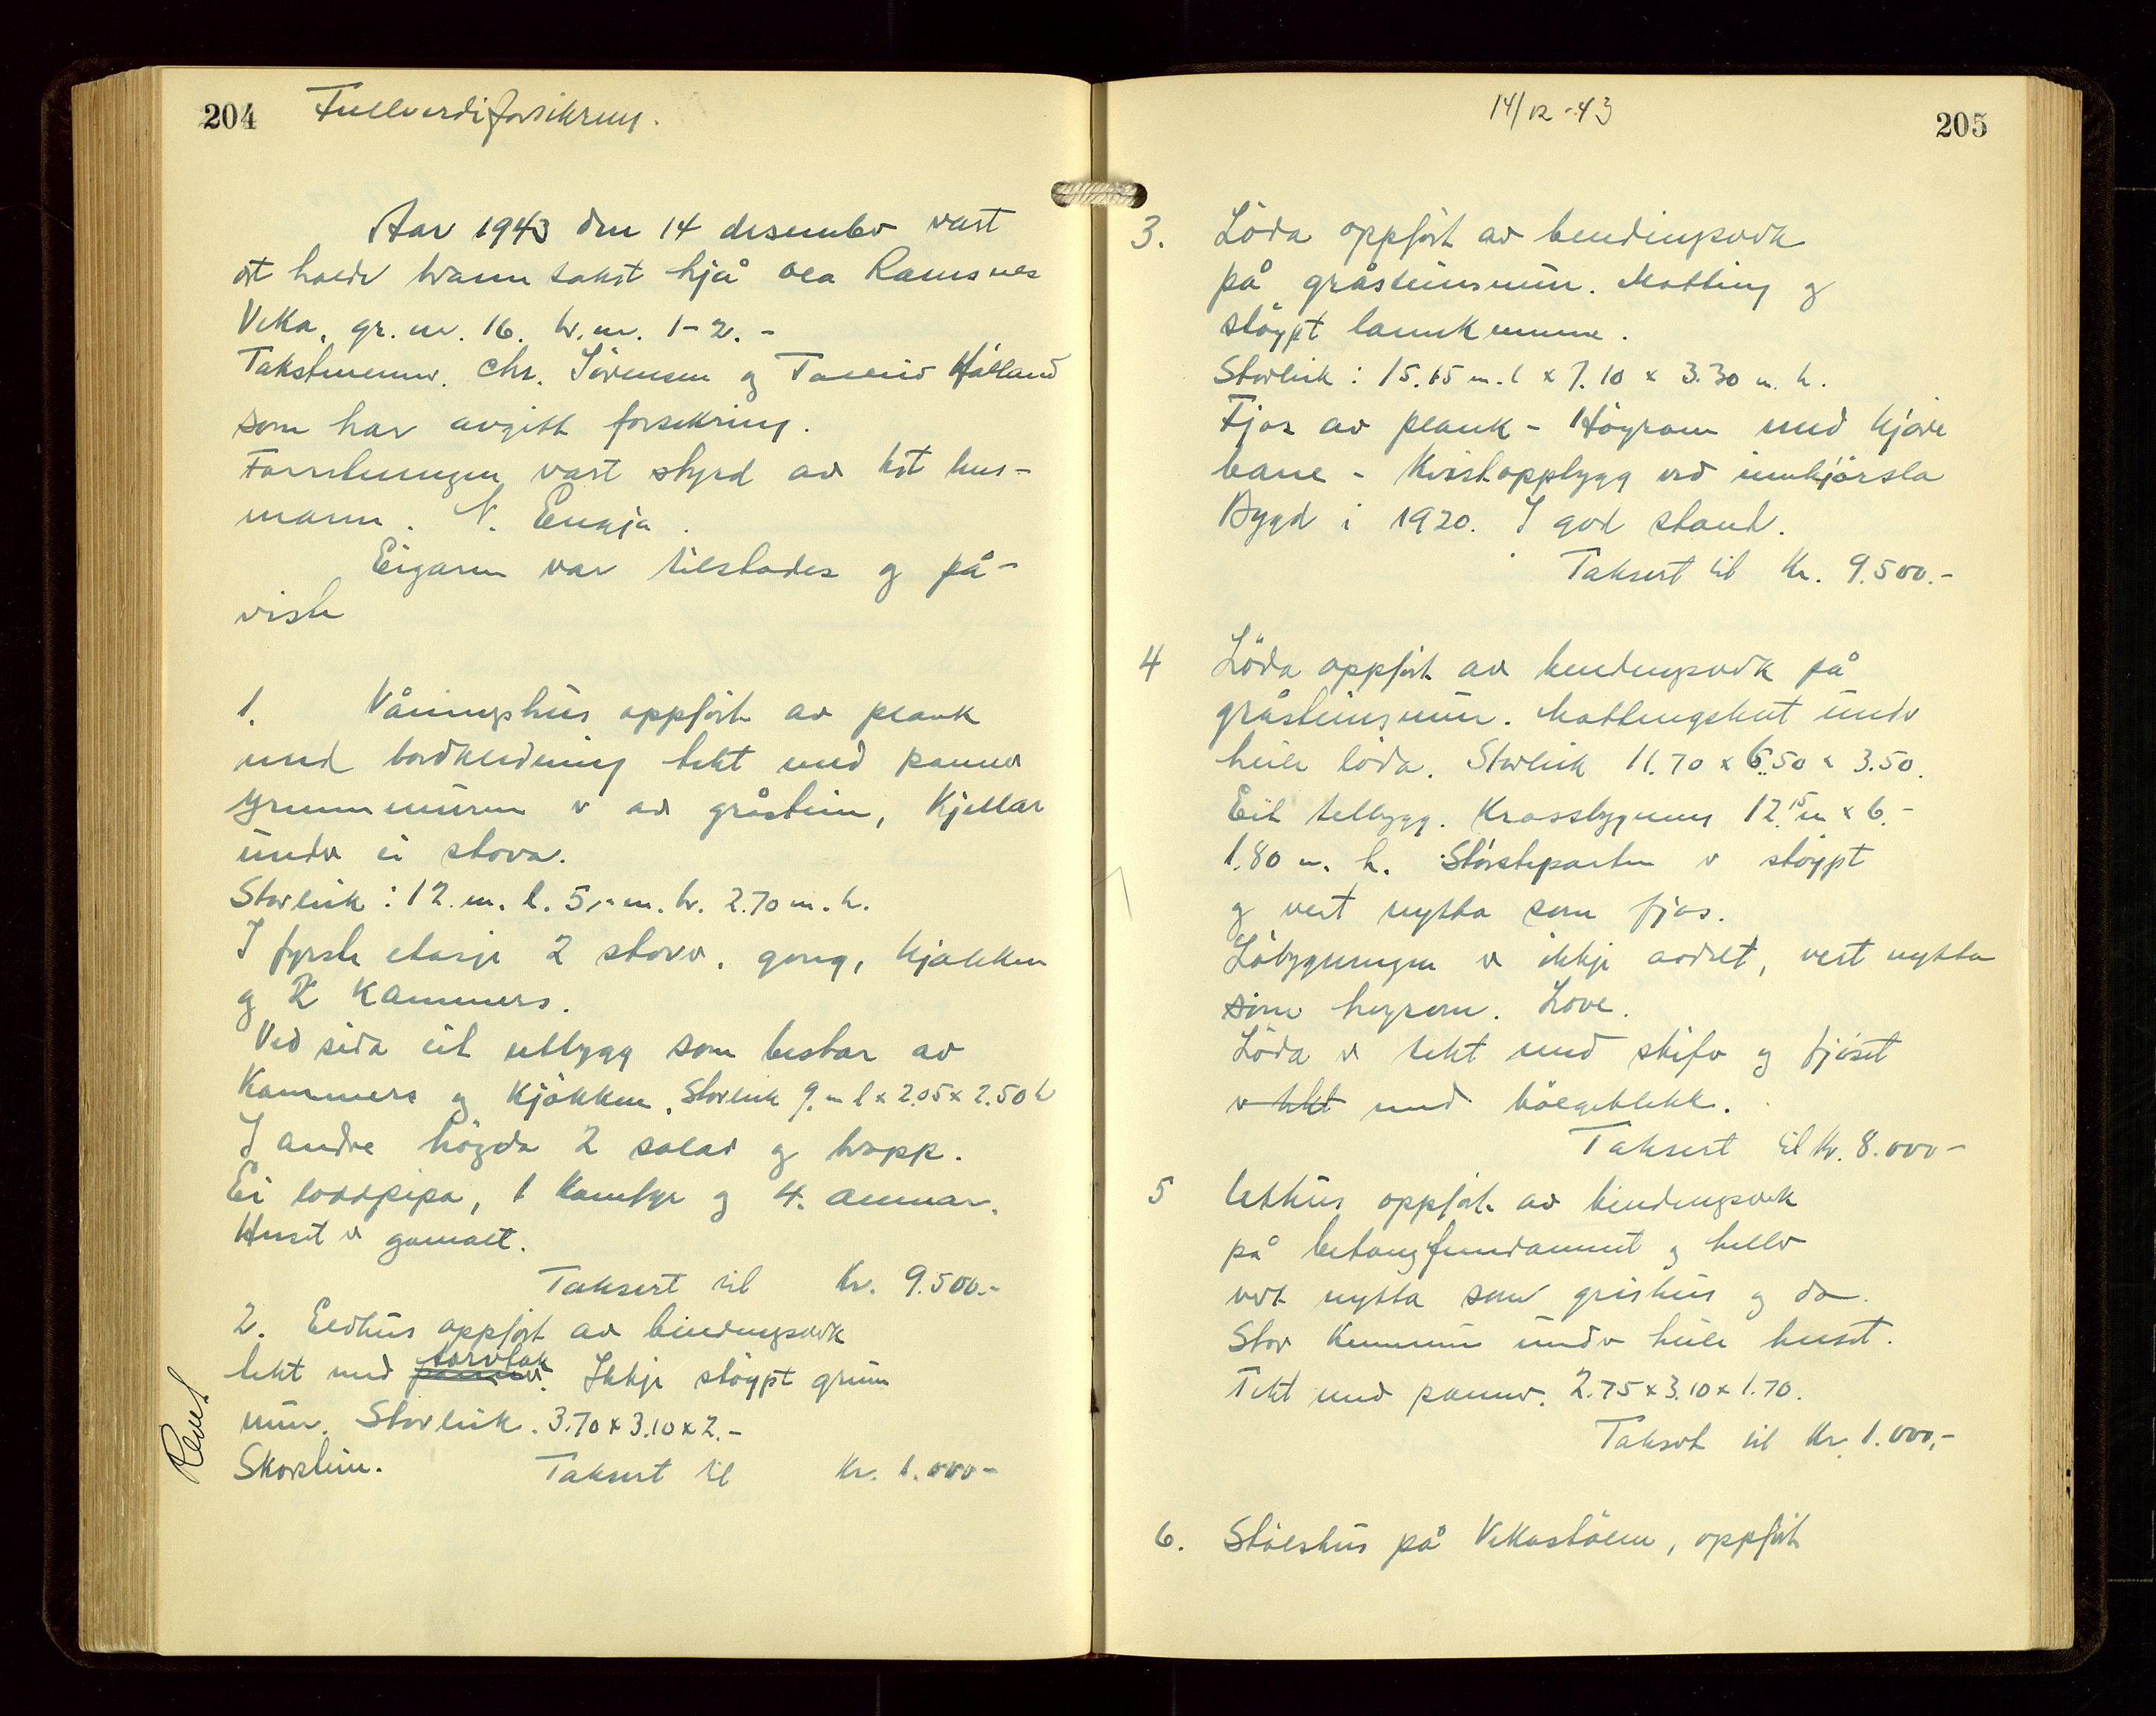 204 Fullverdiforsikring.
Aar 1943 den 14 desember vart
det halde brann takst hjå Ola Ramsnes
Veka, gr. nr. 16. br. nr. 1-2. -
Takstmenner. Chr. Sörensen og Hålland
som har avgitt forsikring.
Forretningen vart styrd av hst hus-
mann. N. Engja.
Eigaren var tilstades og på-
viste
1. Våningshus oppfört av plank
med bordkledning tekt med panner
Grunnmuren er av gråstein, Kjellar
under ei stova.
Storleik: 12. m. l. 5,- m. br. 2.70 m. h.
I fyrste etasje 2 stover, gong, kjökken
og 2 Kammers.
Ved sida eit utbygg som bestar av
Kammers og Kjökken. Storleik 9. m l x 2.05 x 2.50 h
I andre högda 2 salar og trapp.
Ei loddpipa, 1 Komfyr og 4. omnar.
Huset er gamalt.
Taksert til Kr. 9.500.-
2. Eldhus oppfört av bindingsverk
tekt med panner torvtak. Ikkje stöypt grunn
mur. Storleik. 3.70 x 3.10 x 2.-
Skorstein. Taksert til Kr. 1.000-
14/12-43 205
3. Löda oppfört av bendingsverk
på gråsteinsmur. Matting og
stöypt lannkumme.
Storleik: 15.65 m. l x 7.10 x 3.30 m. h.
Fjos av plank - Höyrom med kjöre
bane - Kvistoppbygg ved innkjörsla
Bygd i 1920. I god stand.
Taksert til Kr. 9.500.-
4 Löda oppfört av bendingsverk på
gråsteinsmur. under
heile löda. Storleik 11.70 x 6.50 x 3.50.
Eit tilbygg. Krossbygning 12.15 m x 6.-
1.80 m. h. Störsteparten er stöypt
og vert nytta som fjos.
Löbygningen er ikkje avdelt, vert nytta
som höyrom. Love.
Löda er tekt med skifer og fjöset
er tekt med bölgeblekk.
Taksert til Kr. 8.000-
5 Uthus oppfört av bindingsverk
på betongfundament og heller
vert nytta som grishus og do.
Stor Kummen under heile huset.
Tekt med panner. 2.75 x 3.10 x 1.70.
Taksert til Kr 1.000,-
6. Stölshus på Vekastölen, oppfört